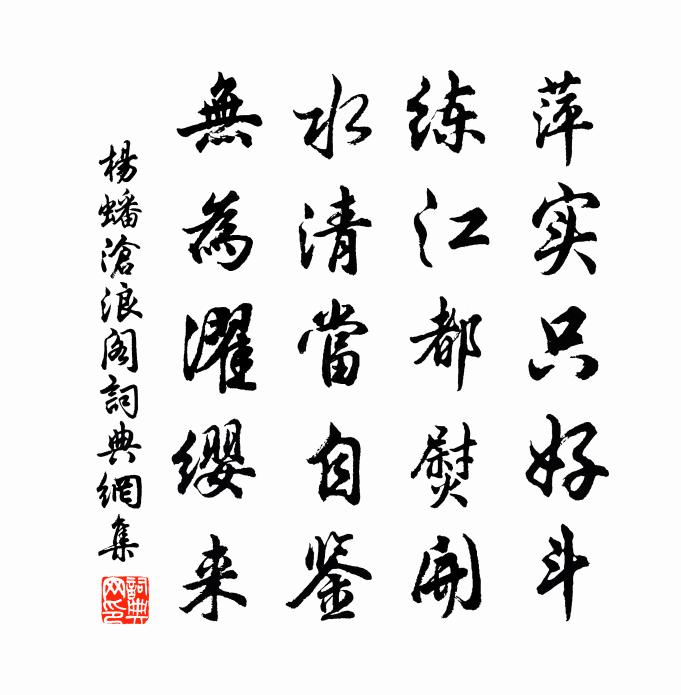 萍实只好斗
练江都熨開
水清當自鉴
無為濯缨来
楊蟠滄浪阁詞典網集
詞典網印